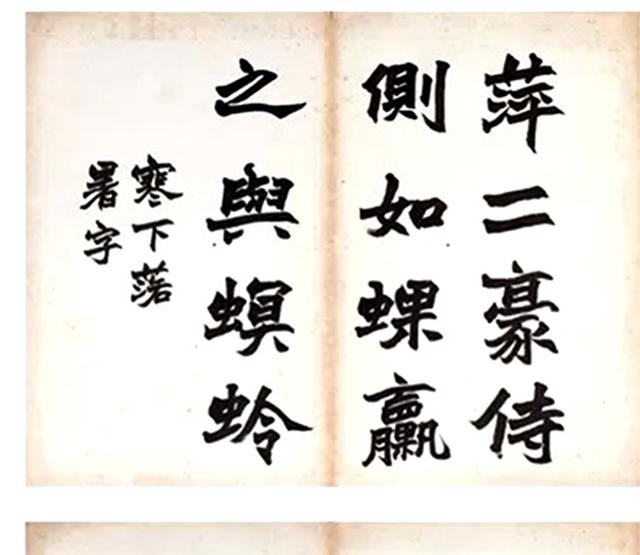 萍二豪侍
側如蜾臝
之與螟蛉
寒下落
暑字